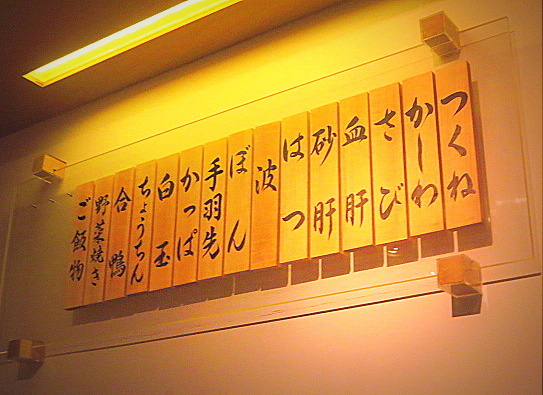 つくね
かしわ
さび
血肝
砂肝
はつ
波
ぼん
手羽先
かっぱ
白玉
ちょうちん
合鴨
野菜焼き
ご飯物